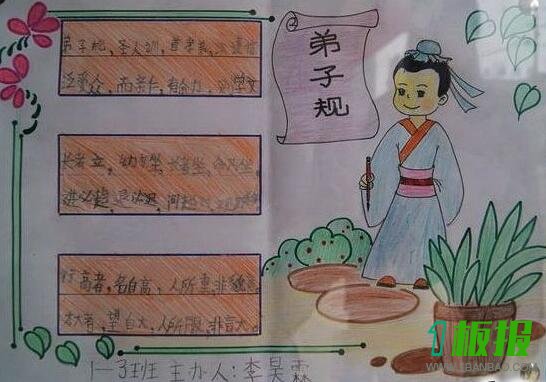 弟子规
弟子规，圣人训，首孝弟，次谨信
泛爱众，而亲仁，有余力，则学文
长者立，幼勿坐，长者坐，命乃坐，
进必趋，退必迟，问起对，
行高者，名自高，人所重，非貌高，
才大者，望自大，人所服，非言大。
1—3班 主办人：李昊霖
1板报
WWW.1BANBAO.COM